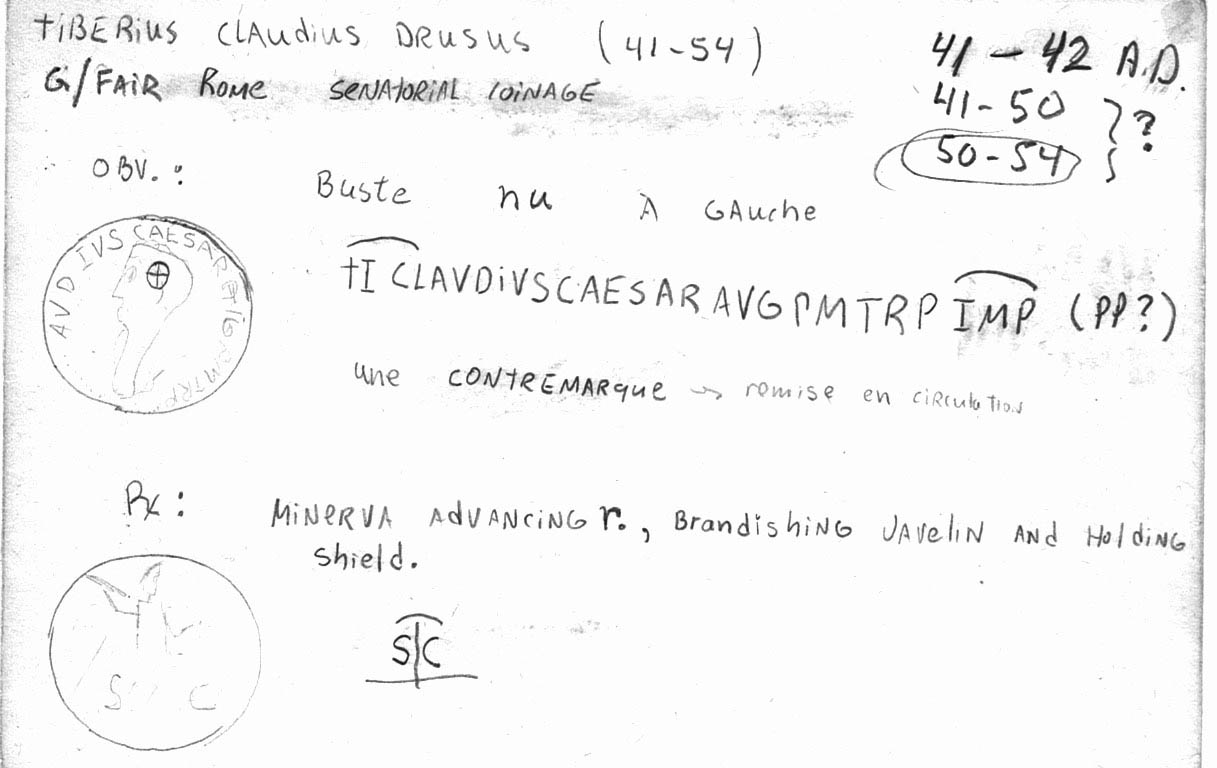 TIBERIUS CLAUDIUS DRUSUS (41-54)
G/FAIR ROME SENATORIAL COINAGE
41 - 42 A.D.
41 - 50
50 - 54 ?
OBV. :
Buste nu À GAuche
AVDIVSCAESARAVG MTRP
TI CLAVDIVSCAESAR AVG PMTRP IMP (PP?)
une CONTREMARque → remise en circulation
Rx :
MINERVA AdVANCING r., Brandishing JAVelIN AND HoldING
shield.
S|C
S C